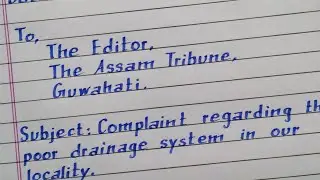 To,
The Editor,
The Assam Tribune,
Guwahati.
Subject: Complaint regarding th
poor drainage system in our
locality.